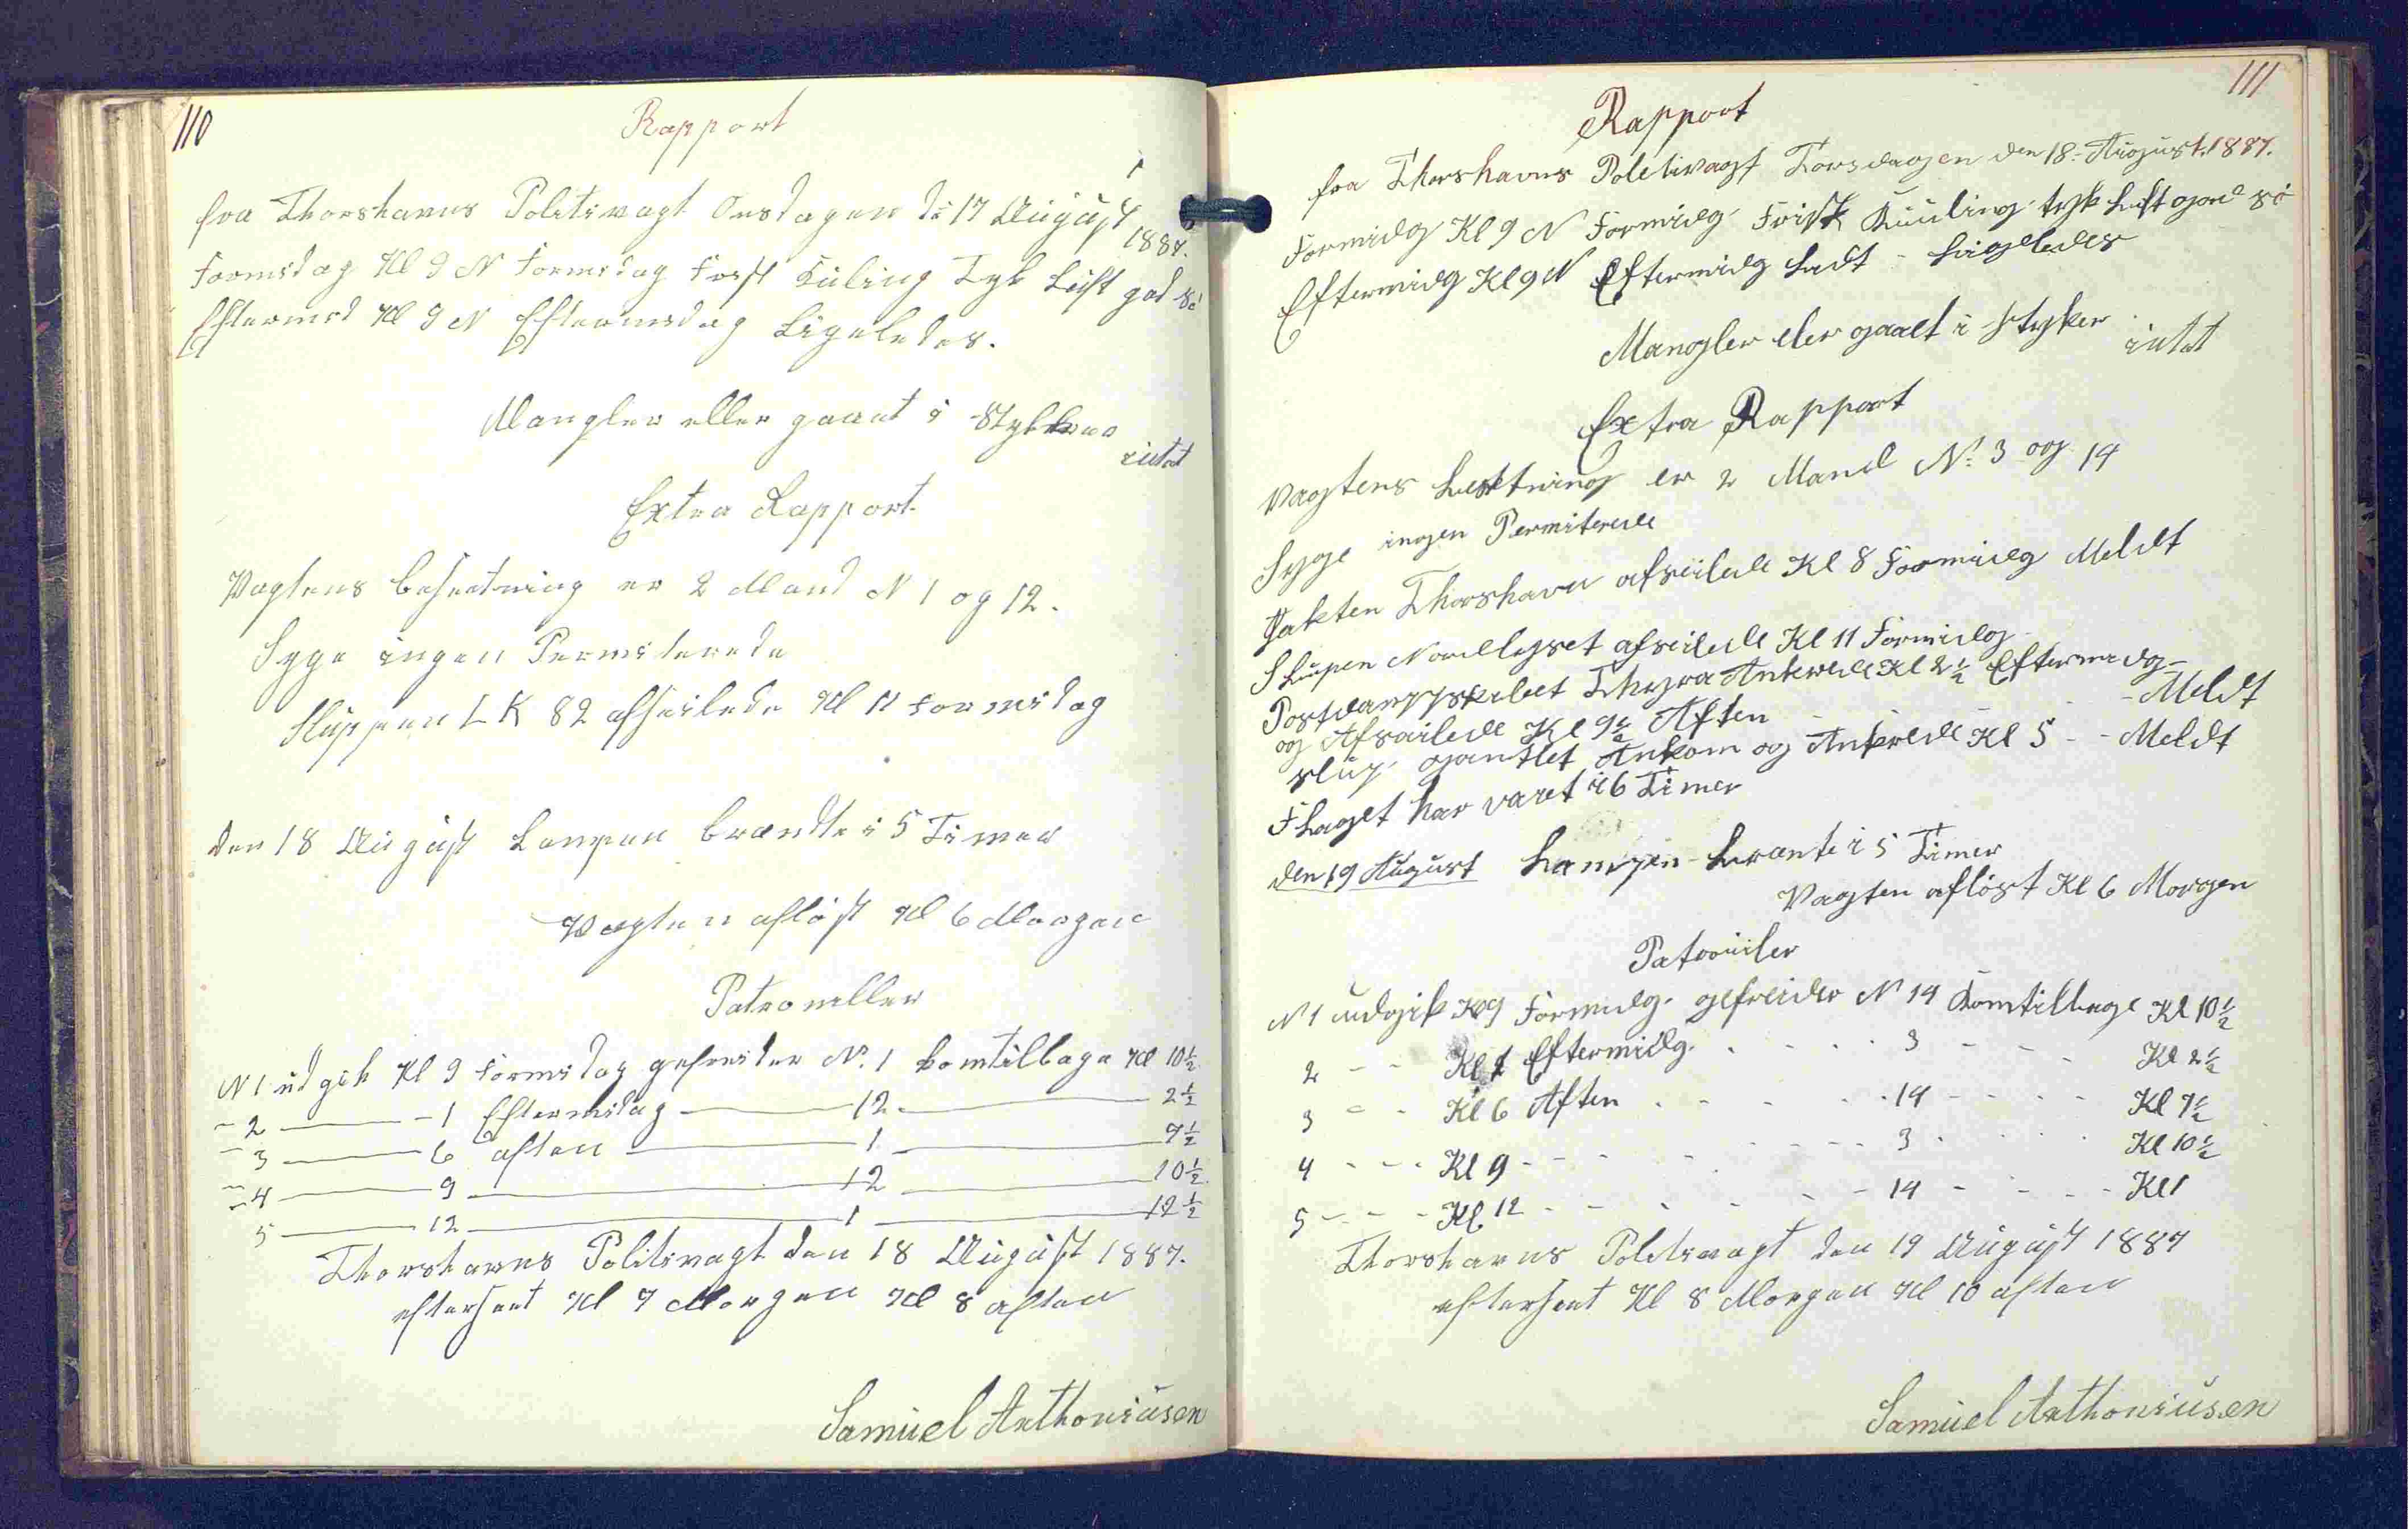 110
Rapport
fra Thorshavns Politivagt Onsdagen d: 17 August
1887.
Formidag Kl 9 N Formidag Frisk Kuling Tyk Luft god Sö
Eftermid Kl 9 N Eftermidag Ligeledes.
Mangler eller gaaet i Stykker
intet
Extra Rapport
Vagtens besætning er 2 Mand N 1 og 12.
Syge ingen Permiterede
Sluppen LK 82 afseilede Kl 11 Formidag
den 18 August Lampen brændte i 5 Timer
Vagten aflöst Kl 6 Morgen
Patroueller
N 1 udgik Kl 9 Formidag gefreider N. 1 komtilbage Kl 10½
- 2 — - 1 Eftermidag — 12 — 2½
- 3 — 6 aften — 1 — 7½
- 4 — 9 — 12 — 10½
5 — 12 — 1 — 12½
Thorshavns Politivagt den 18 August 1887.
efterseet Kl 7 Morgen Kl 8 aften
Samuel Anthoniusen
111
Rapport
fra Thorshavns Poletivagt Torsdagen den 18. August. 1887.
Formidg Kl 9 N Formidg Frisk Kuuling tyk Luft god Sö
Eftermidg Kl 9 N Eftermidg Ludt - Ligeledes
Mangler eler gaaet i Styker
intet
Extra Rapport
Vagtens besetning er 2 Mand N: 3 og 14
Syge ingen Permiterede
Jakten Thorshavn afseilede Kl 8 Formidg Meldt
Slupen Nordlyset afseilede Kl 11 Formidg -
Postdampskibet Thyra Ankrede Kl 2½ Eftermidg -
og Afseilede Kl 9½ Aften - - - Meldt
Slup Ankom og Ankrede Kl 5 - - Meldt
Flaget har varet i 6 Timer
den 19 August Lampen brænte i 5 Timer
Vagten aflöst Kl 6 Morgen
Patrouiler
N 1 udgik Kl 9 Formidg. gefreider N 14 Komtilbage Kl 10½
2 - - Kl 1 Eftermidg. - - - 3 - - - Kl 2½
3 - - Kl 6 Aften - - - 14 - - - Kl 7½
4 - - - Kl 9 - - - 3 - - - Kl 10½
5 - - - Kl 12 - - - 14 - - - Kl 1
Thorshavns Politivagt den 19 August 1887
efterseet Kl 8 Morgen Kl 10 aften
Samuel Anthoniusen